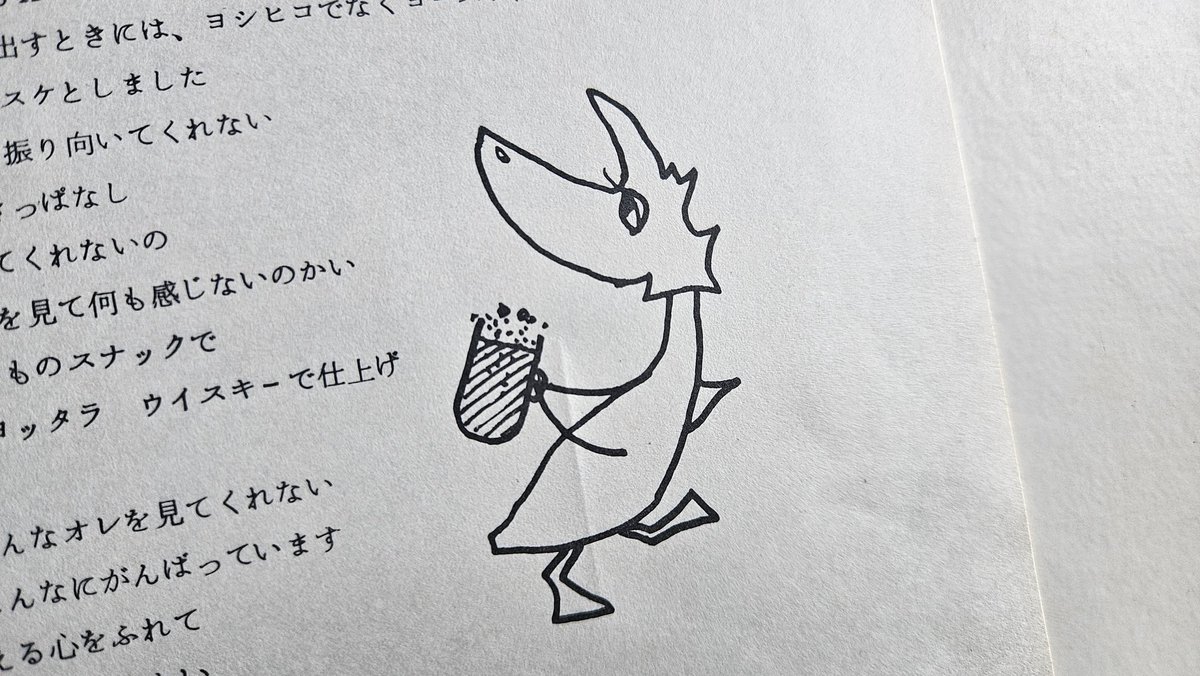 出すときには、ヨシヒコでなく
スケとしました
振り向いてくれない
っぱなし
てくれないの
を見て何も感じないのかい
ものスナックで
ョッタラ　ウイスキーで仕上げ
んなオレを見てくれない
んなにがんばっています
える心をふれて